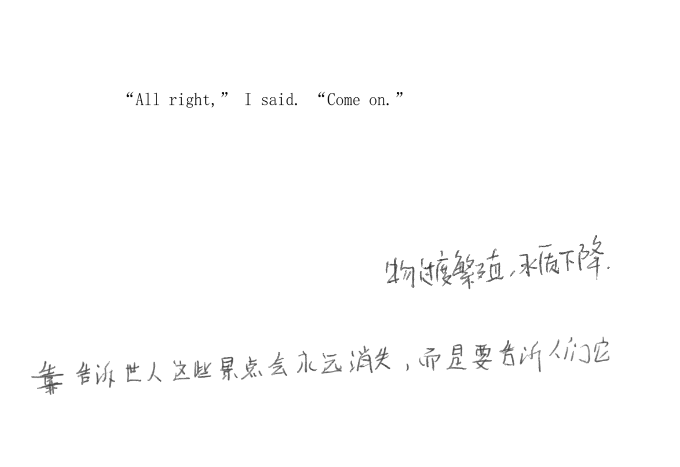 “All right,” I said. “Come on.”
物过度繁殖，水质下降．
告诉世人这些景点会永远消失，而是要告诉人们它